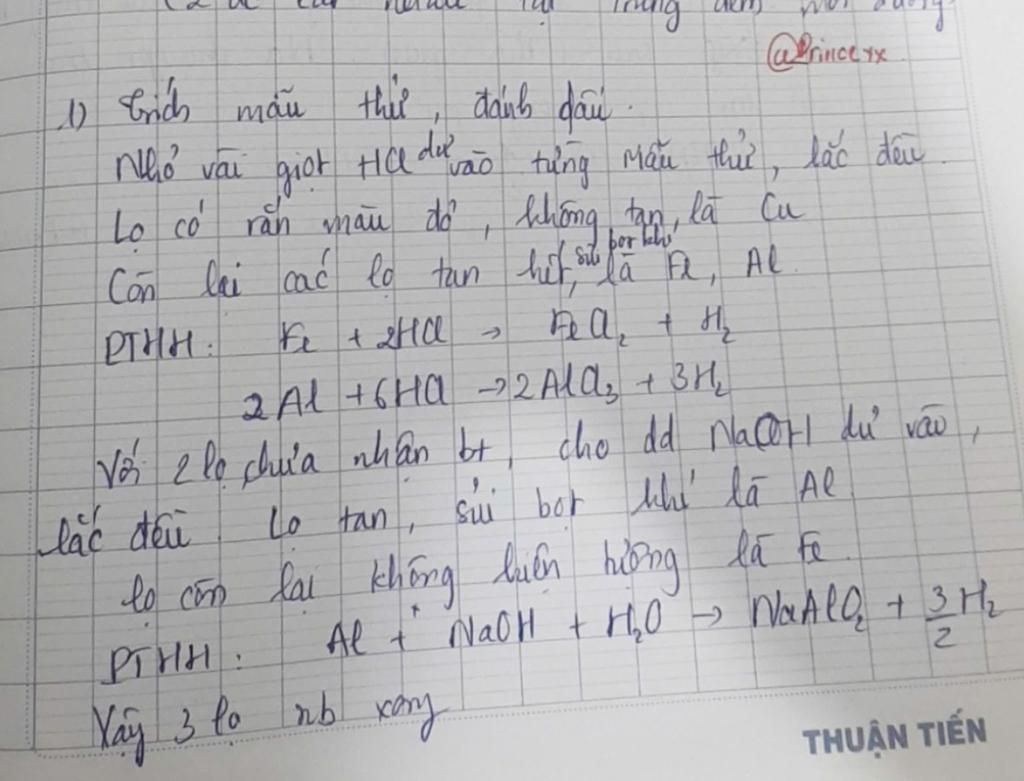 (2
trung điểm mỗi đường
@Princerx
1) trích mẫu thử, đánh dấu.
Nhỏ vài giọt HCl dư vào từng mẫu thử, lắc đều.
Lọ có rắn màu đỏ, không tan, là Cu
Còn lại các lọ tan hết, sủi bọt khí là Fe, Al.
PTHH: Fe + 2HCl → FeCl₂ + H₂
2Al + 6HCl → 2AlCl₃ + 3H₂
Với 2 lọ chưa nhận bt, cho dd NaOH dư vào,
lắc đều Lọ tan, sủi bọt khí là Al
lọ còn lại không hiện tượng là Fe.
PTHH: Al + NaOH + H₂O → NaAlO₂ + 3/2 H₂
Vậy 3 lọ nb xong
THUẬN TIẾN